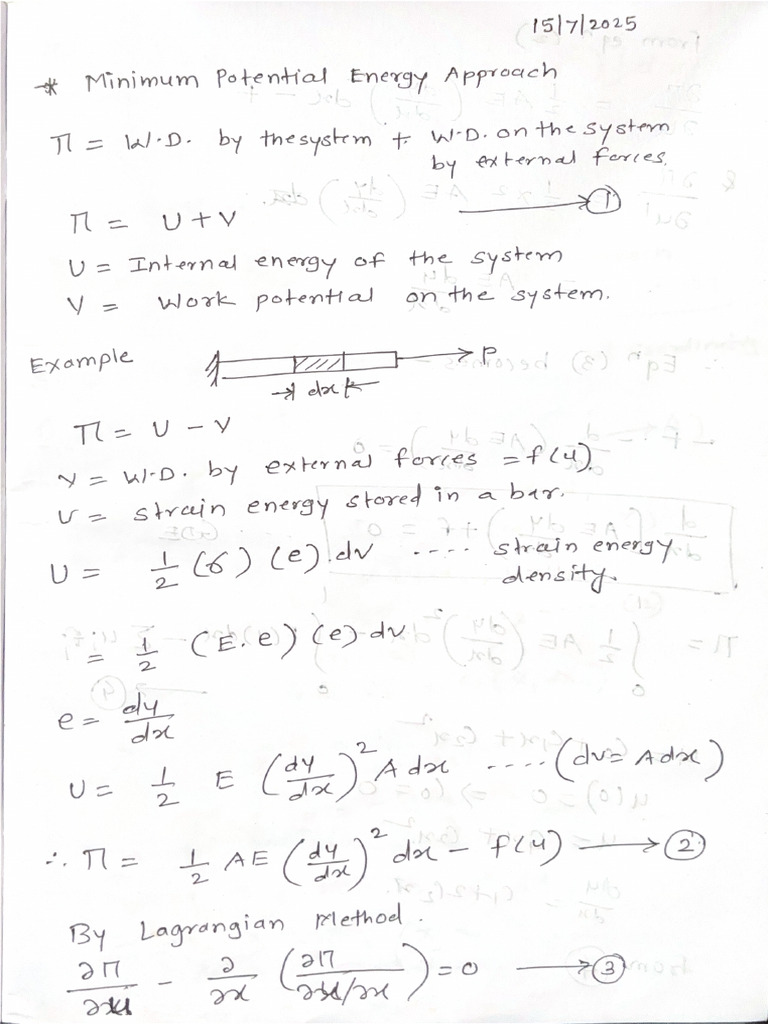 15/7/2025
* Minimum Potential Energy Approach
Π = W.D. by the system + W.D. on the system
by external forces.
Π = U + V → ①
U = Internal energy of the system
V = Work potential on the system.
Example
P
dx
Π = U - V
V = W.D. by external forces = f(u)
U = strain energy stored in a bar.
U = 1/2 (σ) (e).dv .... strain energy
density.
= 1/2 (E.e) (e) dv
e = du/dx
U = 1/2 E (du/dx)² A dx .... (dv = Adx)
∴ Π = 1/2 AE (du/dx)² dx - f(u) → ②
By Lagrangian Method.
∂Π/∂u - ∂/∂x (∂Π/∂u/∂x) = 0 → ③